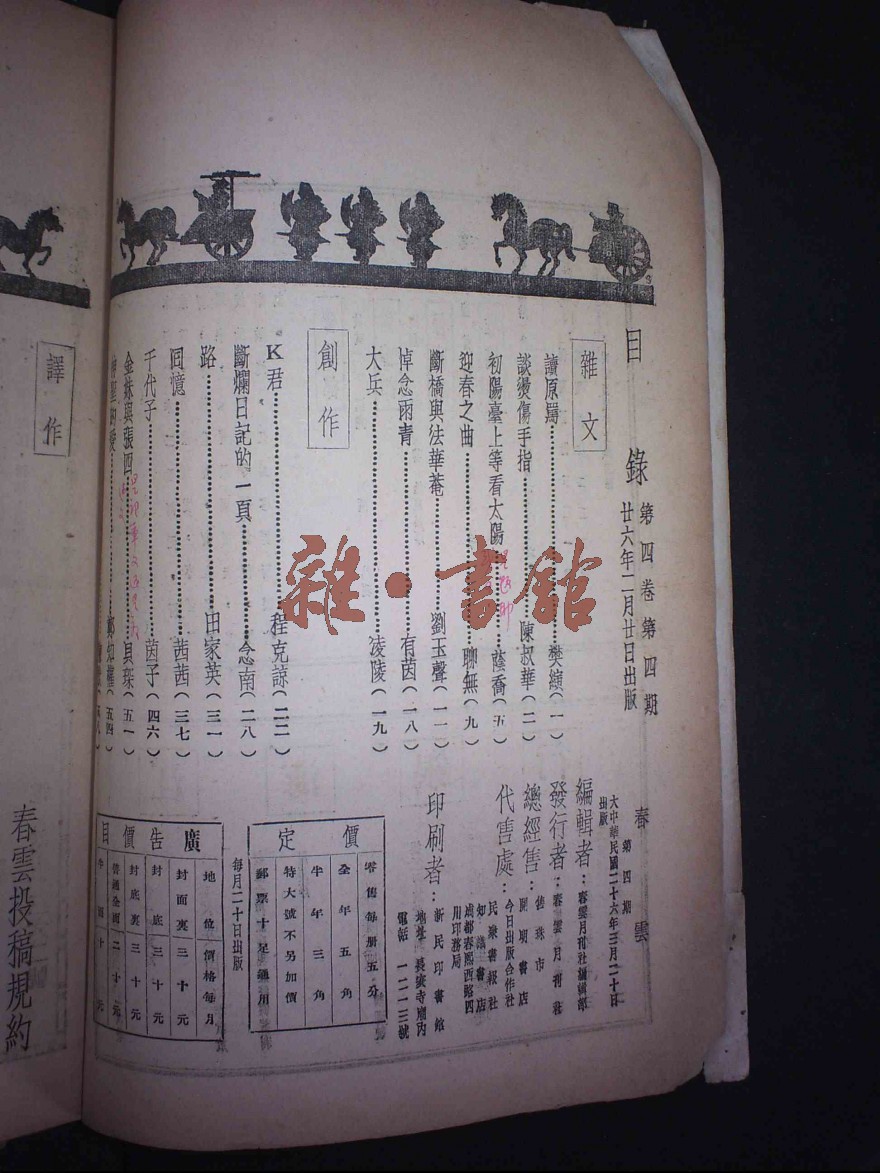 目錄
第四卷第四期
廿六年二月廿日出版
雜文
讀原駡…………樊縯(一)
談燙傷手指…………陳叔華(二)
初陽臺上等看太陽…………蔭喬(五)
迎春之曲…………聊無(九)
斷橋與法華菴…………劉玉聲(一一)
悼念雨青…………有茵(一八)
大兵…………凌陵(一九)
創作
K君…………程克諒(二二)
斷爛日記的一頁…………念南(二八)
路…………田家英(三一)
回憶…………茜茜(三七)
千代子…………茵子(四六)
金妹與張四…………貝琛(五一)
的愛…………(五四)
譯作
春雲
第四期
大中華民國二十六年三月二十日
出版
編輯者：春雲月刊社編輯部
發行者：春雲月刊社
總經售：
開明書店
代售處：
今日出版合作社
民衆書報社
知識書店
成都春熙西路四
用印務局
印刷者：
新民印書館
地址 長安寺廟內
電話 一二二三號
定價
零售每册五分
全年五角
半年三角
特大號不另加價
郵票十足通用
每月二十日出版
廣告價目
地位 價格每月
封面裏 三十元
封底 三十元
封底裏 三十元
普通全面 二十元
十元
春雲投稿規約
雜·書館